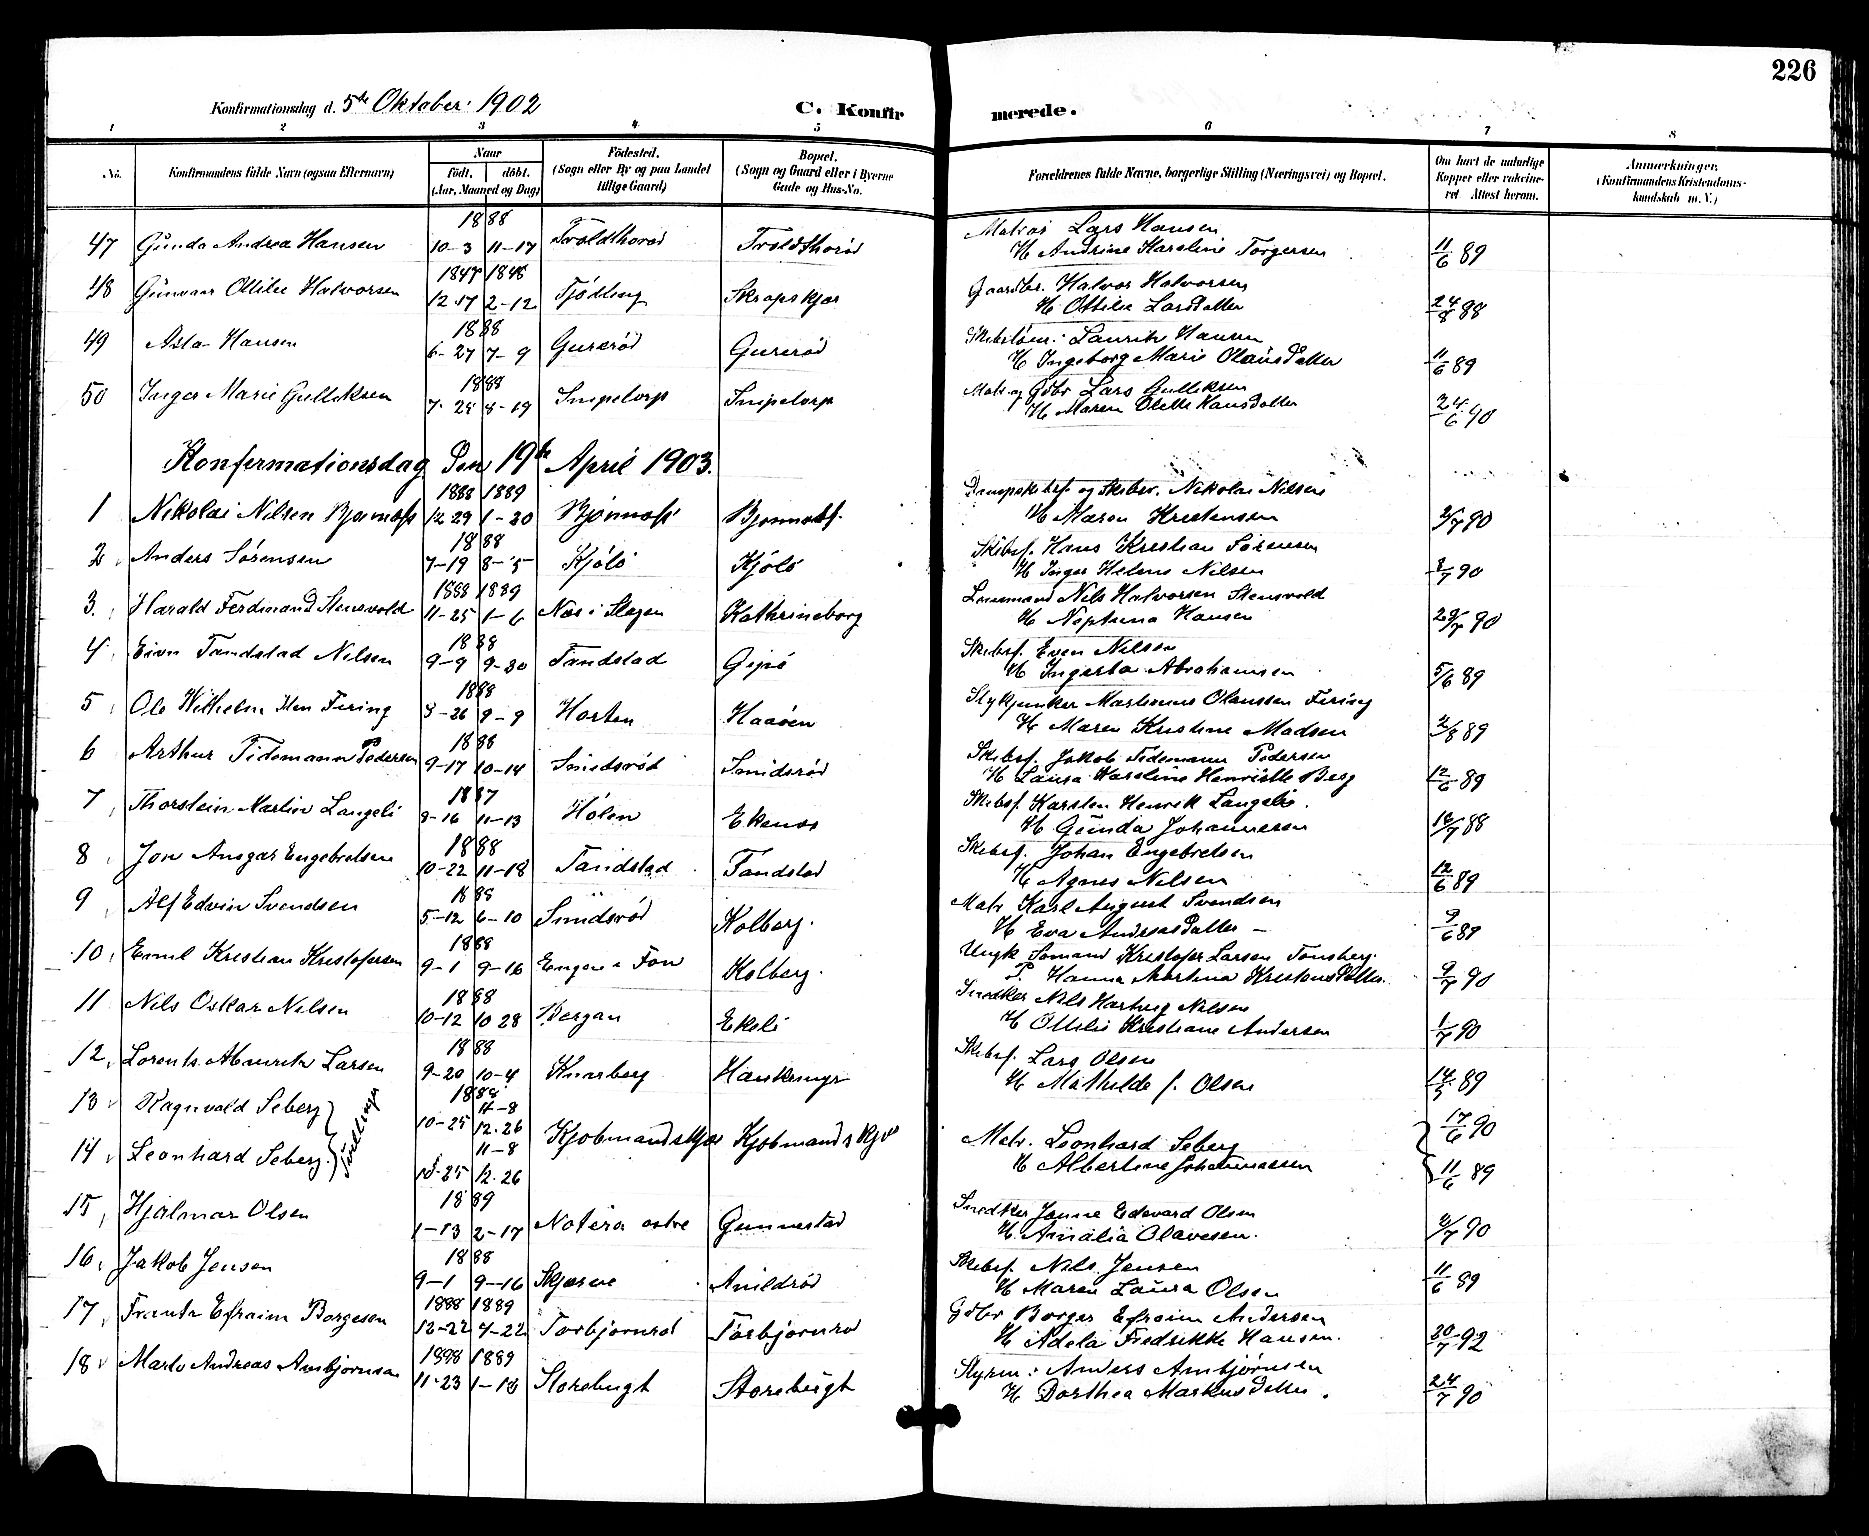 226
Konfirmationsdag d. 5te Oktober 1902 C. Konfirmerede.
1 2 3 4 5 6 7 8
No. Konfirmandens fulde Navn (ogsaa Efternavn) Naar födt. döbt. (Aar, Maaned og Dag) Födested. (Sogn eller By og paa Landet tillige Gaard) Bopæl. (Sogn og Gaard eller i Byerne Gade og Hus-No. Forældrenes fulde Navne, borgerlige Stilling (Næringsvei) og Bopæl. Om havt de naturlige Kopper eller vakcineret. Attest herom. Anmærkninger. (Konfirmandens Kristendomskundskab m. V.)
1888 Matros Lars Hansen
47 Gunda Andrea Hansen 10-3 11-17 Troldthorød Troldthorød H Andrine Karoline Torgersen 11/6 89
1847 1848 Gaardbr. Halvor Halvorsen
48 Gunvaar Otilie Halvorsen 12-17 2-12 Tjödling Skrapskjær H Ottilie Larsdatter 24/8 88
1888 Skibstöm: Lauritz Hansen
49 Asta Hansen 6-27 7-9 Gurerød Gurerød H Ingeborg Marie Olausdatter 11/6 89
1888 Matr og Gdbr Lars Gulliksen
50 Inger Marie Gulliksen 7-28 8-19 Simpelorp Simpelorp H Maren Olette Hansdatter 24/6 90
Konfermationsdag Den 19de April 1903.
1888 1889 Dampskibsf. og Skiber. Nikolai Nilsen
1 Nikolai Nilsen Bjørnaas 12 29 1-20 Bjønnaas Bjønnaas H Maren Kristensen 2/7 90
1888 Skibsf. Hans Kristian Sörensen
2 Anders Sörensen 7-19 8-5 Kjölö Kjölö H Inger Helene Nilsen 2/7 90
1888 1889 Lensmand Nils Halvorsen Stensvold
3. Harald Ferdinand Stensvold 11-25 1-6 Næs i Slagen Kathrineborg H Neptuna Hansen 29/7 90
1888 Skibsf. Even Nilsen
4 Eivn Tandstad Nilsen 9-9 9-30 Tandstad Gipö H Ingarta Abrahamsen 5/6 89
1888 Stykjunker Martinus Olaussen Firing
5 Ole Wilhelm Firing 8-26 9-9 Horten Haaöen H Maren Kristine Madsen 2/8 89
1888 Skibsf. Jakob Tidemann Pedersen
6 Arthur Tidemann Pedersen 9-17 10-14 Smidsrød Smidsrød H Laura Karoline Henriette Berg 12/6 89
1887 Skibsf. Karsten Henrik Langeli.
7 Thorstein Martin Langeli 8-16 11-13 Holen Ekenes H Gunda Johannesen 16/7 88
1888 Skibsf. Johan Engebretsen
8 Jon Ansgar Engebretsen 10-22 11-18 Tandstad Tandstad H Agnes Nilsen 12/6 89
1888 Matr Karl August Svendsen
9 Alf Edvin Svendsen 5-12 6-10 Smidsrød Kolberg. H Eva Andreasdatter 9/6 89
1888 Ungk Sömand Kristofer Larsen Tonsberg
10 Emil Kristian Kristofersen 9-1 9-16 Engene Fon Kolberg. P Hanna Martina Kristensdatter 9/7 90
1888 Snedker Nils Hartvig Nilsen
11 Nils Oskar Nilsen 10-12 10 28 Bergan Ekeli H Ottilie Kristiane Andersen 1/7 90
1888 Skibsf. Lars Olsen
12 Lorents Larsen 9-20 10-4 Knarberg Haukemyr H Mathilde f. Olsen 89
1888
13 Ragnvald Seberg 10-25 11-8 12.26 17/6 90
Tvillinger Kjøbmandskjær Kjøbmandskjær Matr. Leonhard Seberg
14 Leonhard Seberg 10-25 11-8 12.26 H Albertine Johannessen 11/6 89
1889 Snedker Janne Edevard Olsen
15 Hjalmar Olsen 1-13 2-17 Nøterø østre Gunnestad H. Amalia Olavesen. 2/7 90
1888 Skibsf. Nils Jensen
16 Jakob Jensen 9-1 9-16 Skjærve Anildrød H Maren Laura Olsen 11/6 89
1888 1889 Gdbr Borger Efraim Andersen
17 Frantz Efraim Borgesen 12-22 4-22 Torbjørnrød Torbjørnrød H Adela Fredrikke Hansen. 20/7 92
1888 1889 Styrm: Anders Arnbjørnsen
18 Andreas Arnbjørnsen 11-23 1-18 Storebugt Storebugt H Dorthea Markusdatter. 24/7 90